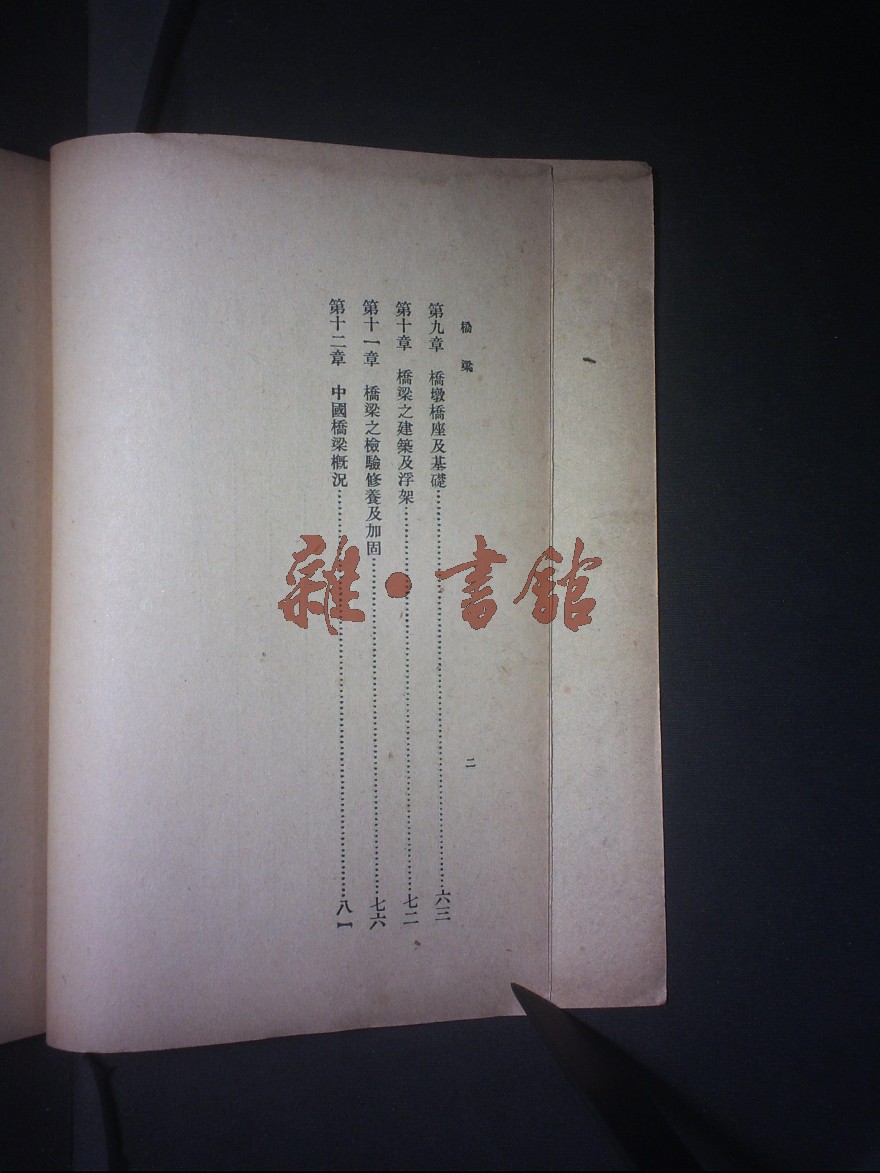 橋梁
二
第九章　橋墩橋座及基礎……六三
第十章　橋梁之建築及浮架……七二
第十一章　橋梁之檢驗修養及加固……七六
第十二章　中國橋梁概況……八一
雜·書館